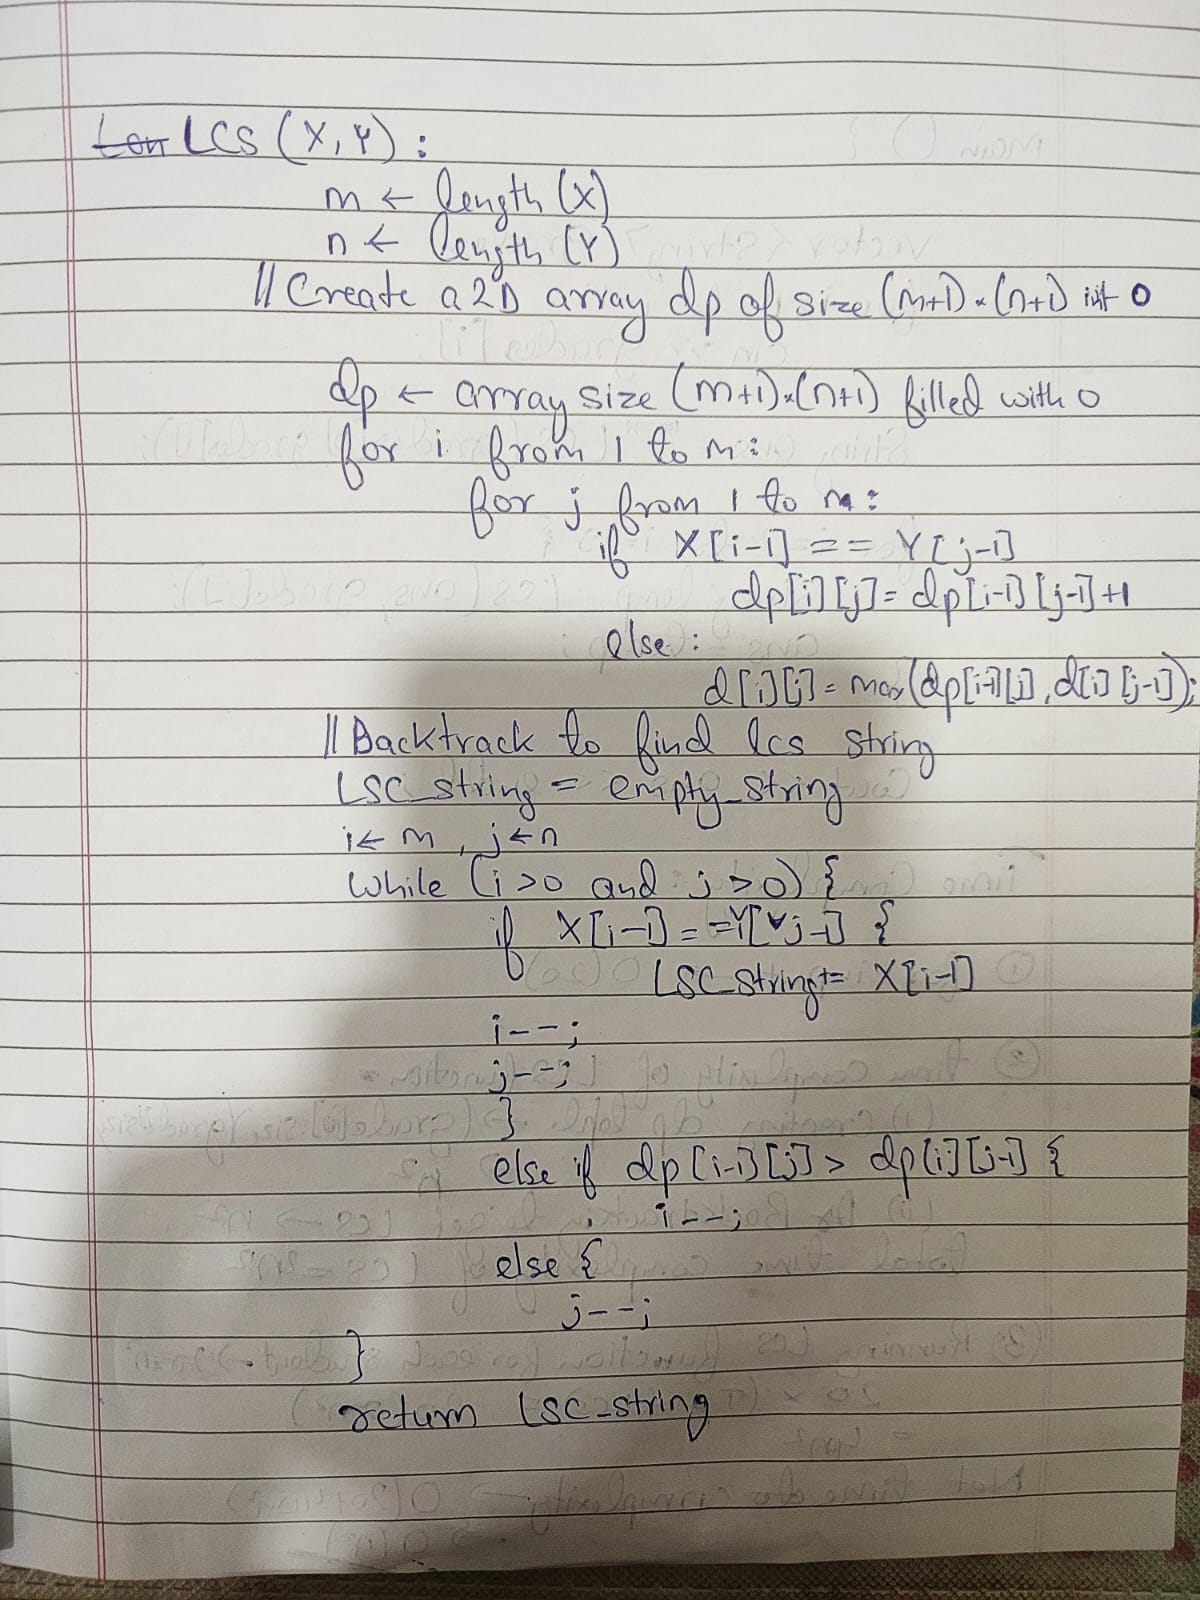 LCS (X, Y) :
m ← length (X)
n ← length (Y)
// Create a 2D array dp of size (m+1) × (n+1) init 0
dp ← array size (m+1)×(n+1) filled with 0
for i from 1 to m :
for j from 1 to n :
if X[i-1] == Y[j-1]
dp[i][j] = dp[i-1][j-1] +1
else :
d[i][j] = max(dp[i-1][j], d[i][j-1]);
// Backtrack to find lcs string
LSC_string = empty_string
i ← m , j ← n
while (i >0 and j >0) {
if X[i-1] == Y[j-1] {
LSC_string += X[i-1]
i--;
j--;
}
else if dp[i-1][j] > dp[i][j-1] {
i--;
else {
j--;
}
return LSC_string